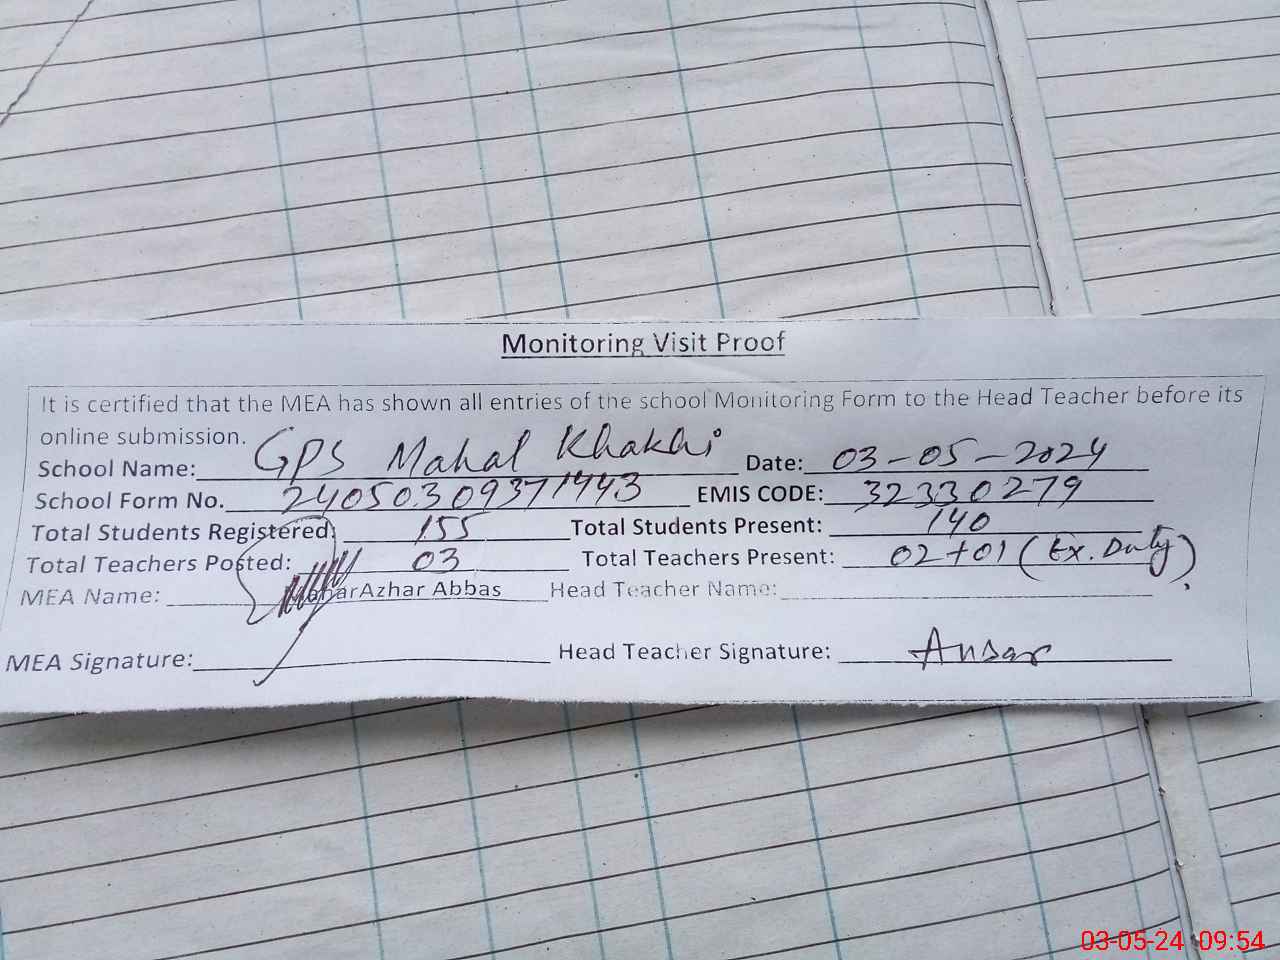 Monitoring Visit Proof
It is certified that the MEA has shown all entries of the school Monitoring Form to the Head Teacher before its
online submission.
School Name: GPS Mahal Khakhi Date: 03-05-2024
School Form No. 24050309371443 EMIS CODE: 32330279
Total Students Registered: 155 Total Students Present: 140
Total Teachers Posted: 03 Total Teachers Present: 02+01 (Ex. Duty)
MEA Name: Azhar Abbas Head Teacher Name:
MEA Signature: Head Teacher Signature: Ansar
03-05-24 09:54